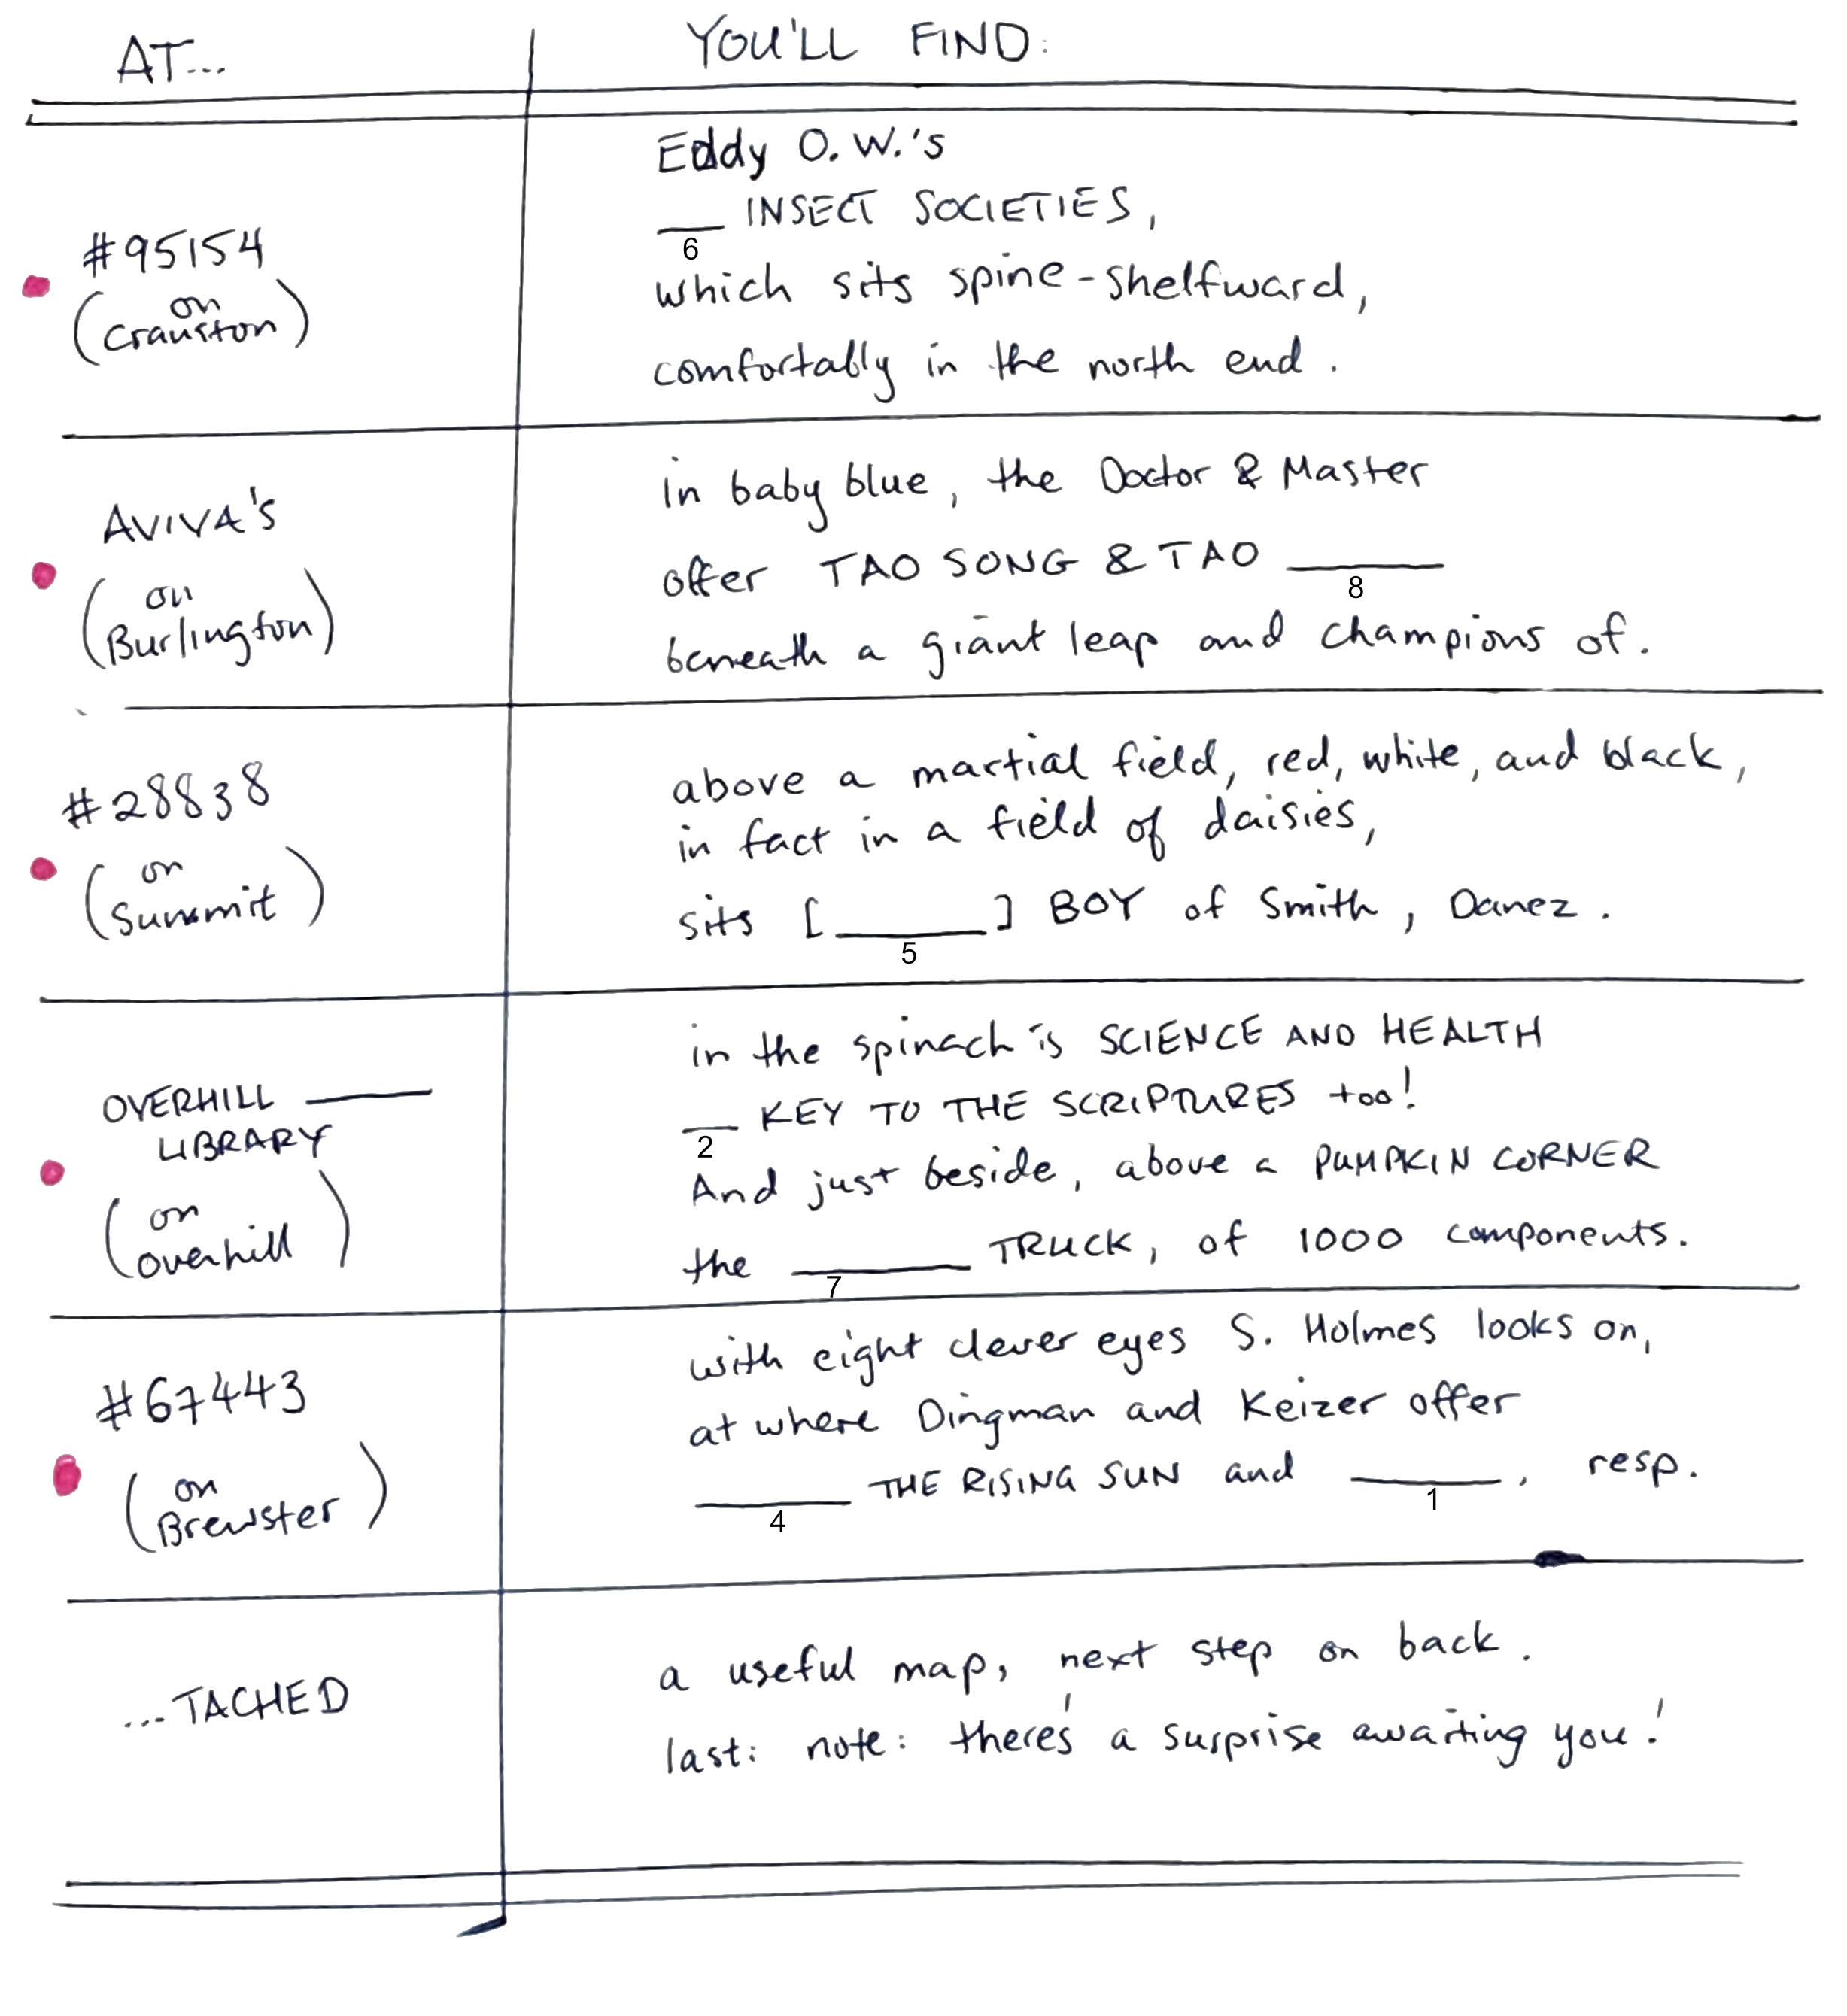 AT...
YOU'LL FIND:
#95154
(on Cranston)
Eddy O. W.'s
___ INSECT SOCIETIES,
6
which sits spine-shelfward,
comfortably in the north end.
AVIVA'S
(on Burlington)
in baby blue, the Doctor & Master
offer TAO SONG & TAO ___
8
beneath a giant leap and champions of.
#28838
(on Summit)
above a martial field, red, white, and black,
in fact in a field of daisies,
sits [___] BOY of Smith, Danez.
5
OVERHILL ___
LIBRARY
(on Overhill)
in the spinach is SCIENCE AND HEALTH
___ KEY TO THE SCRIPTURES too!
2
And just beside, above a PUMPKIN CORNER
the ___ TRUCK, of 1000 components.
7
#67443
(on Brewster)
with eight clever eyes S. Holmes looks on,
at where Dingman and Keizer offer
___ THE RISING SUN and ___, resp.
4
1
...TACHED
a useful map, next step on back.
last: note: there's a surprise awaiting you!